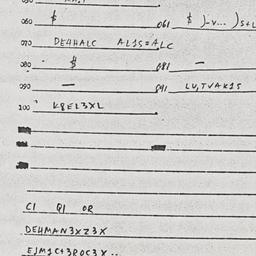 060 $ 061 $ )-v... )s+L
070 DEHHALC AL1S=ALC
080 $ 081 —
090 — 091 LU,TVAK1S
100 K8EL3XL
C1 Q1 OR
DEHMAN3XZ3X
EJM1C+3ROC3X..